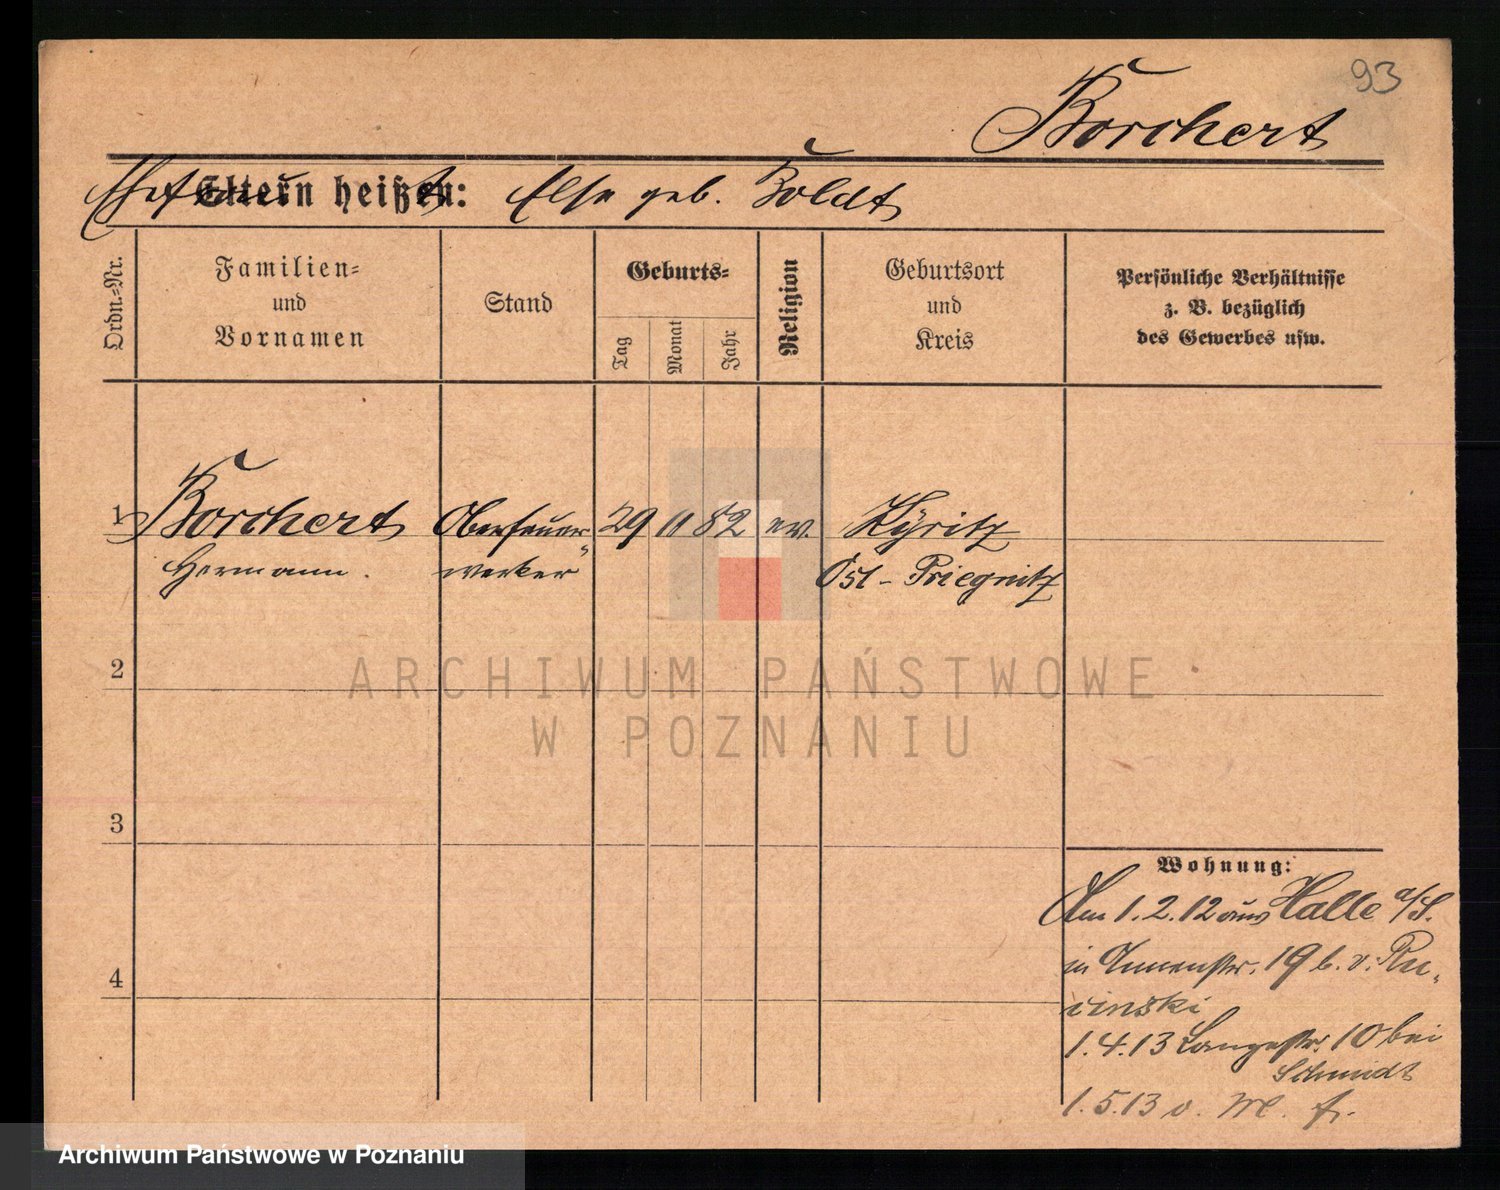 93
Borchert
Ehefrau heißt: Else geb. Boldt
Ordn.=Nr.
Familien=
und
Vornamen
Stand
Geburts=
Tag
Monat
Jahr
Religion
Geburtsort
und
Kreis
Persönliche Verhältnisse
z. B. bezüglich
des Gewerbes usw.
1 Borchert Oberfeuer 29 11 82 ev. Kyritz
Hermann. werker Ost-Priegnitz
2
ARCHIWUM PAŃSTWOWE
W POZNANIU
3
4
Wohnung:
Am 1.2.12 aus Halle a/S.
in 19 b. v.
1.4.13 Langestr. 10 bei
Schmidt
1.5.13 v.
Archiwum Państwowe w Poznaniu